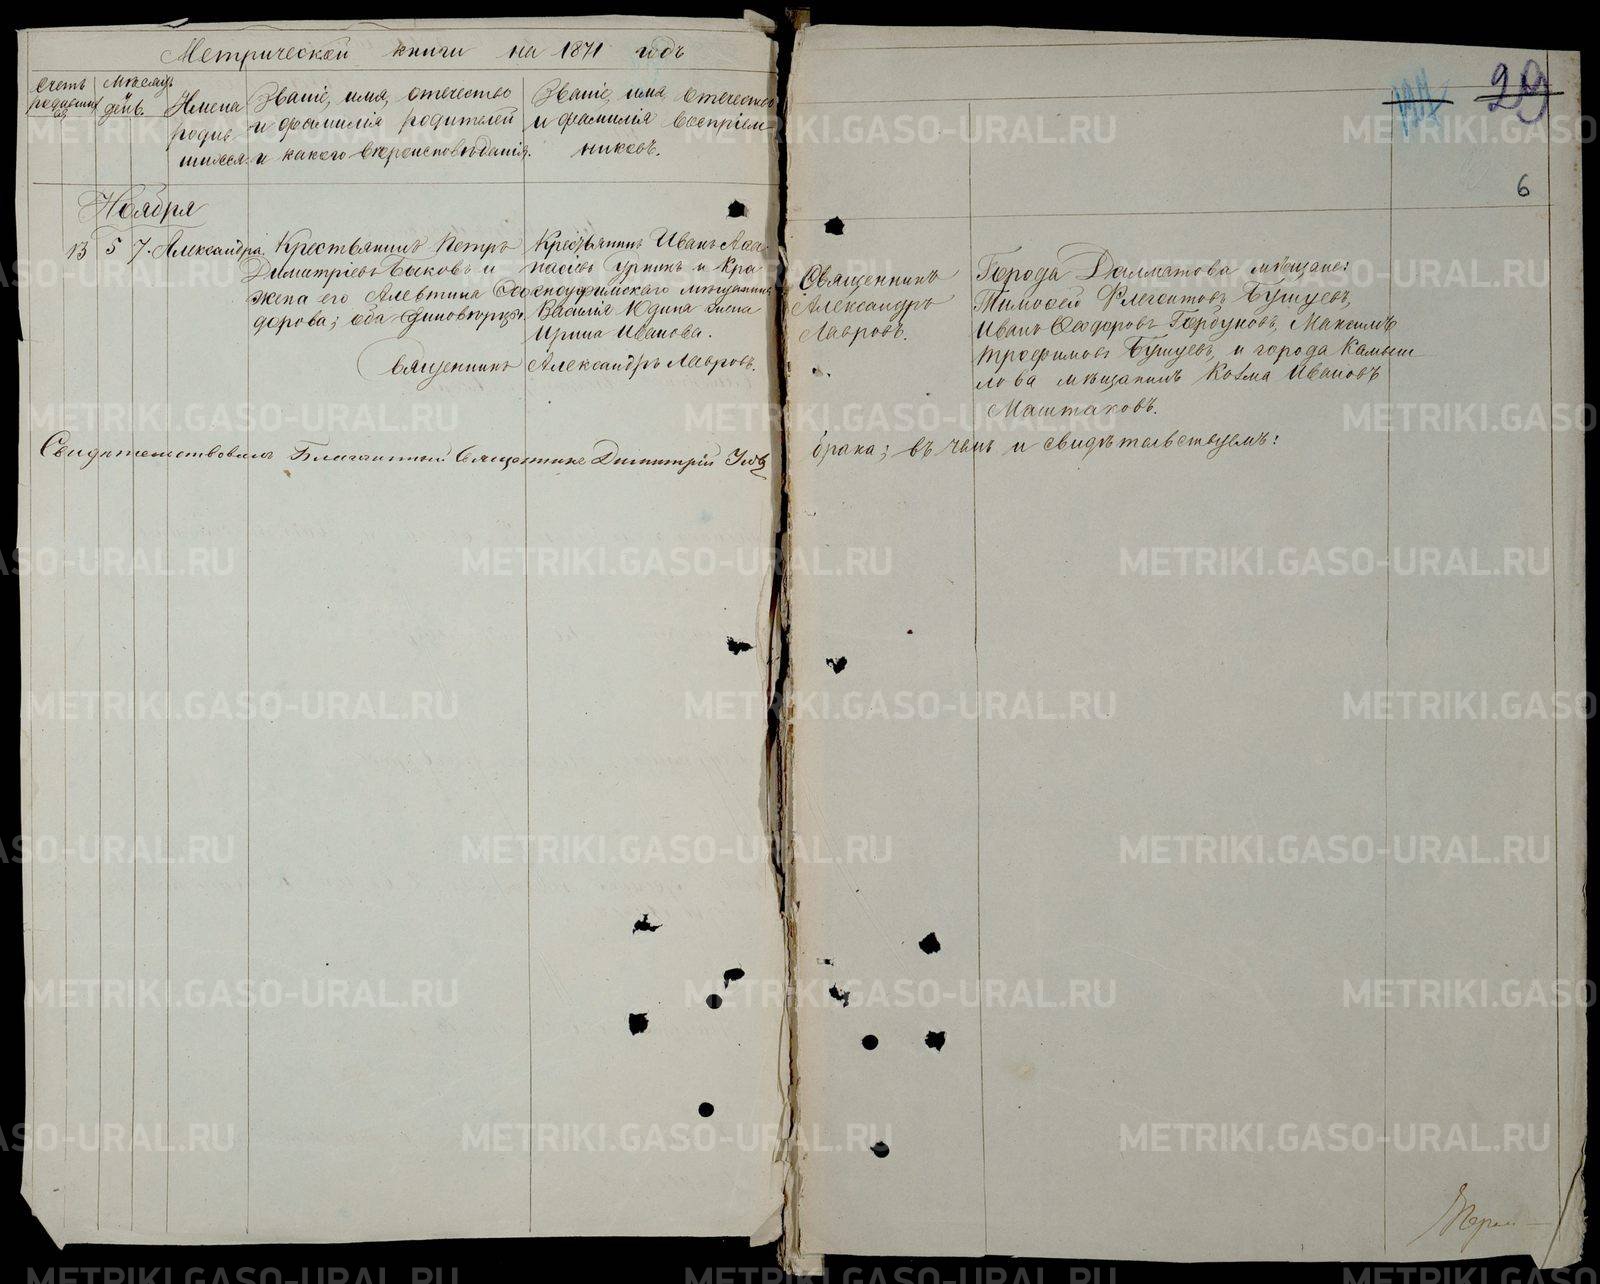 Метрической книги на 1871 годъ
Счетъ родившихся
Мѣсяцъ и день.
Имена родившихся
Званіе, имя, отечество
и фамилія родителей
и какого вѣроисповѣданія.
Званіе, имя, отечество
и фамилія воспріем-
никовъ.
Ноября
13 5 7. Александра. Крестьянинъ Петръ
Димитріевъ Быковъ и
жена его Алевтина Ѳео
дорова; оба единовѣрцы.
Крестьянинъ Иванъ Аѳа-
насіевъ и Кра
сноуфимскаго мѣщанина
Василія Юдина жена
Ирина Иванова.
Священникъ Александръ Лавровъ.
Свидѣтельствовалъ Благочинный Священникъ Димитрій
29
6
Священникъ
Александръ
Лавровъ.
Города Далматова мѣщане:
Тимоѳей Флегонтовъ Бушуевъ,
Иванъ Ѳеодоровъ Горбуновъ, Максимъ
Трофимовъ Бушуевъ, и города Камыш
лова мѣщанинъ Козма Ивановъ
Маштаковъ.
брака; въ чемъ и свидѣтельствуемъ:
METRIKI.GASO-URAL.RU